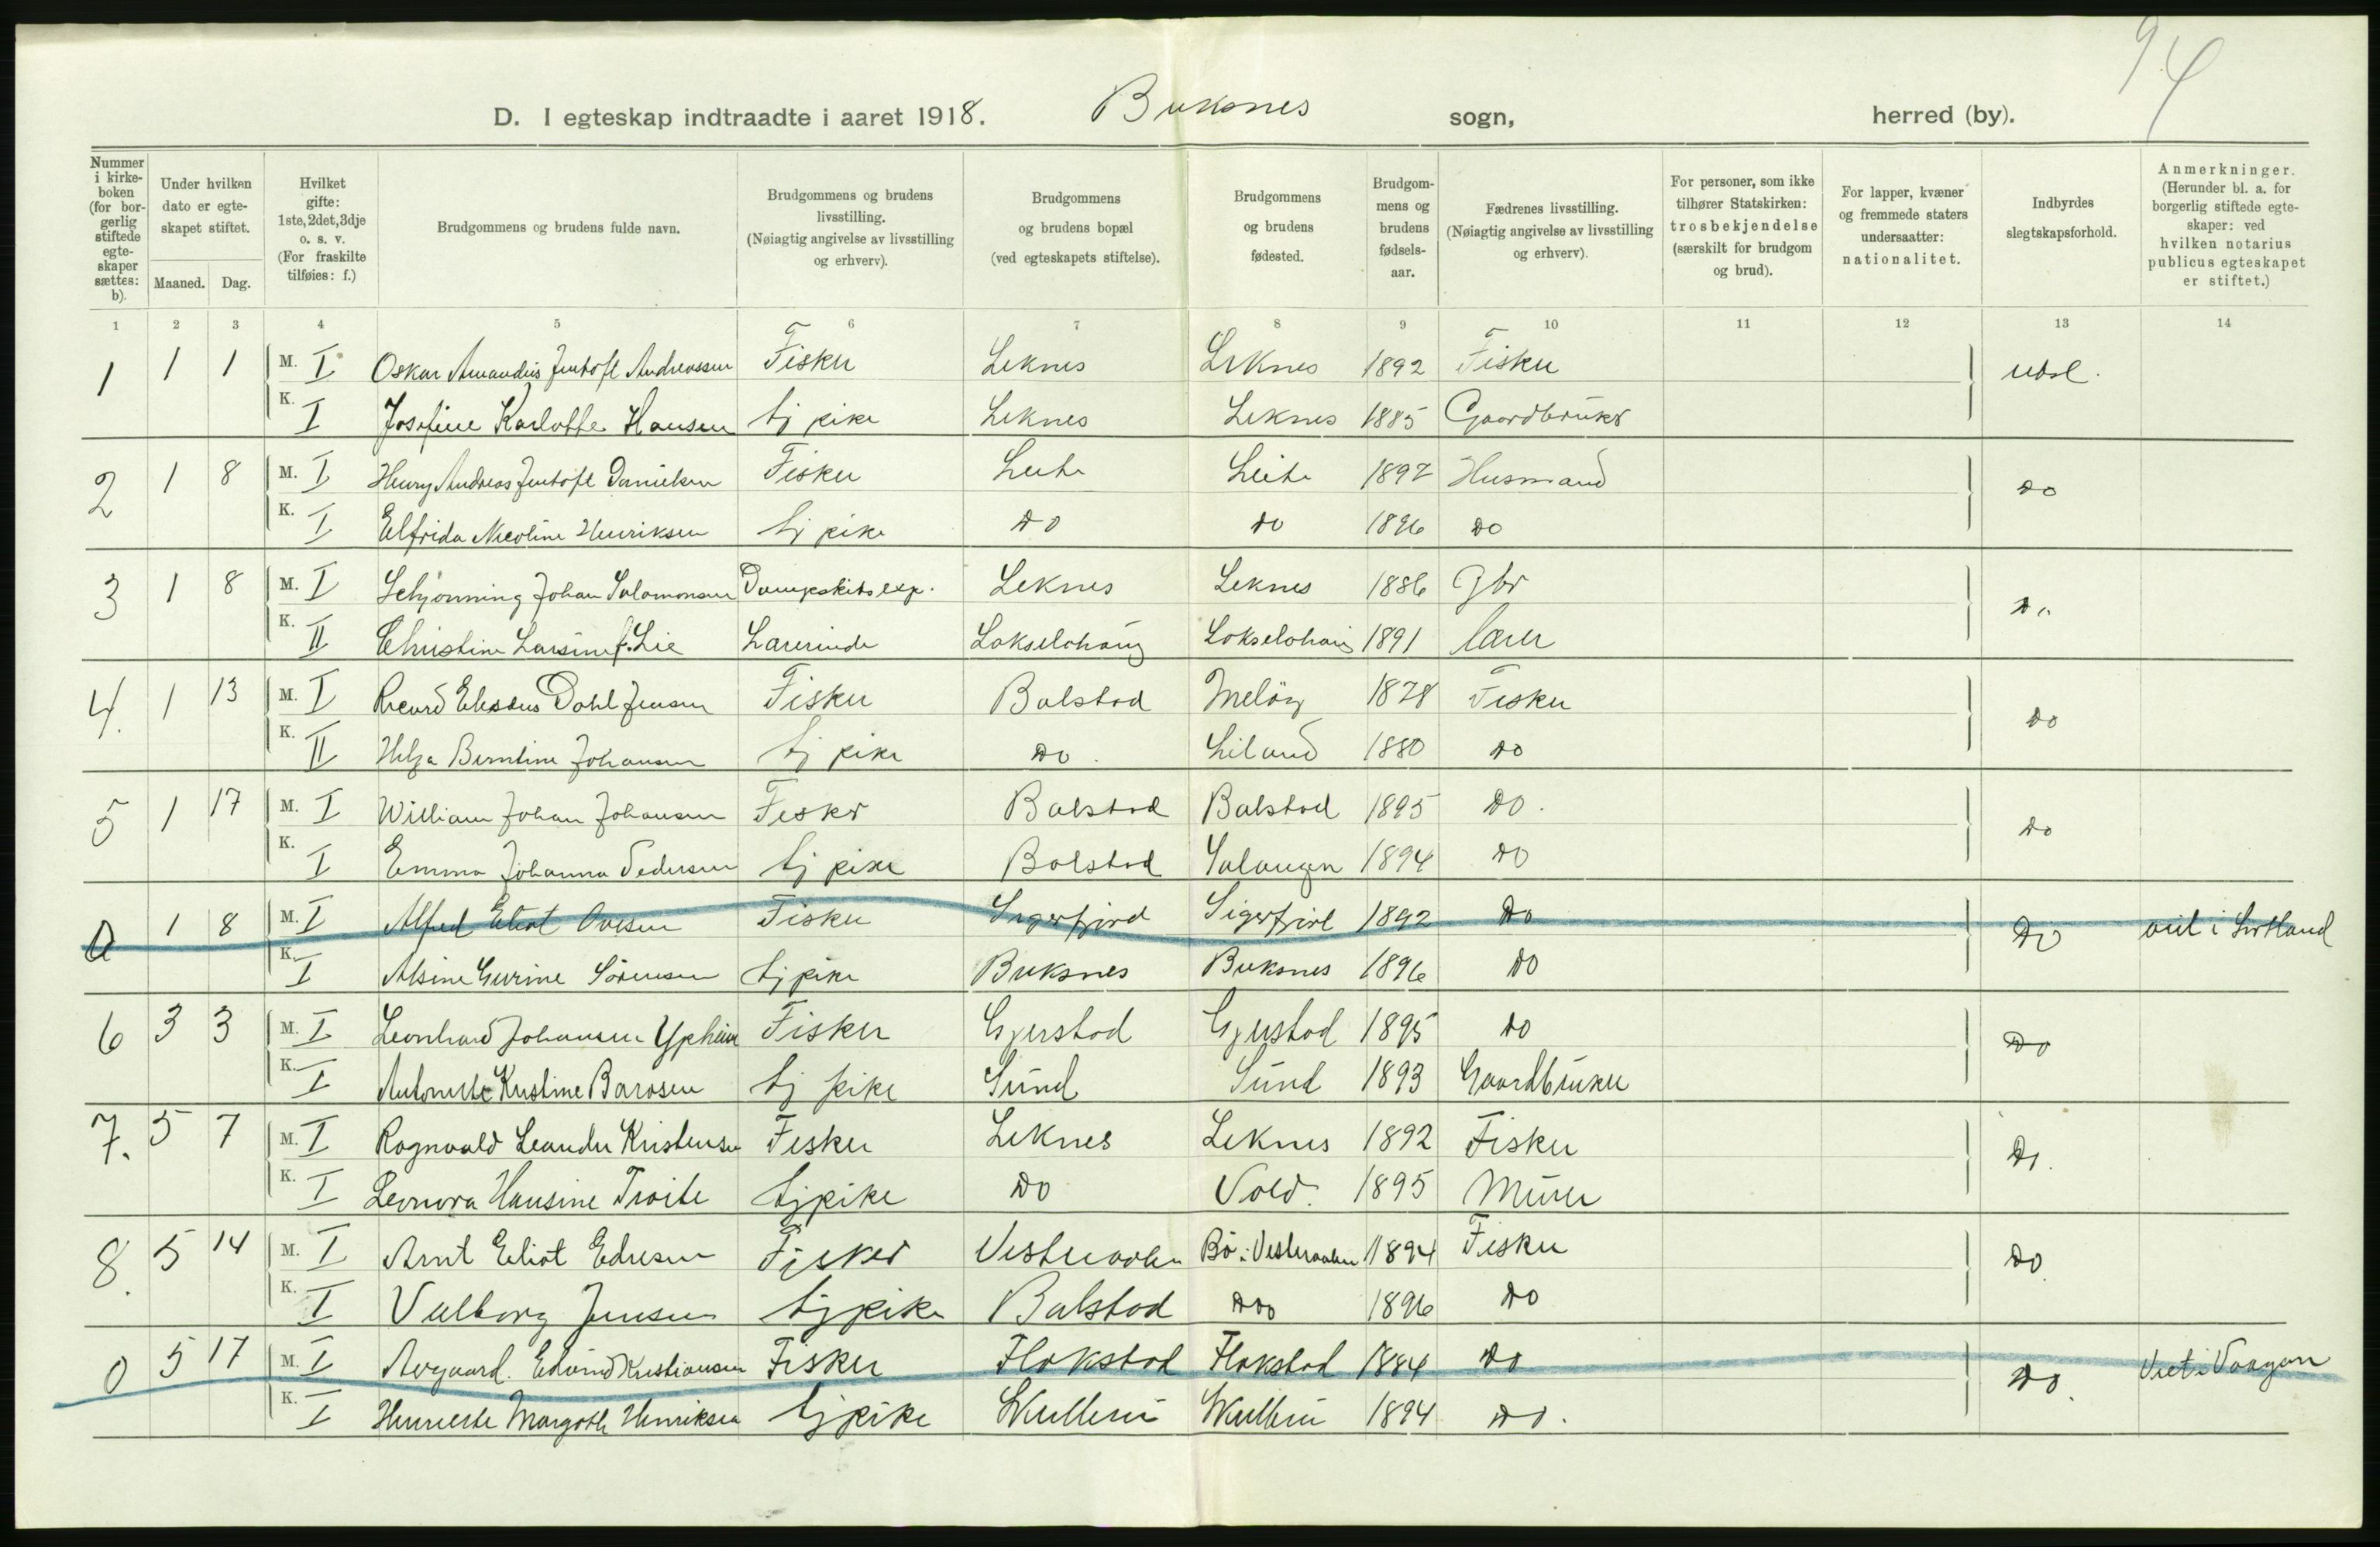 94
D. I egteskap indtraadte i aaret 1918. Buksnes sogn, herred (by).
Nummer i kirkeboken (for borgerlig stiftede egteskaper sættes: b).
Under hvilken dato er egteskapet stiftet.
Maaned. Dag.
Hvilket gifte: 1ste, 2det, 3dje o. s. v. (For fraskilte tilføies: f.)
Brudgommens og brudens fulde navn.
Brudgommens og brudens livsstilling. (Nøiagtig angivelse av livsstilling og erhverv).
Brudgommens og brudens bopæl (ved egteskapets stiftelse).
Brudgommens og brudens fødested.
Brudgommens og brudens fødselsaar.
Fædrenes livsstilling. (Nøiagtig angivelse av livsstilling og erhverv).
For personer, som ikke tilhører Statskirken: trosbekjendelse (særskilt for brudgom og brud).
For lapper, kvæner og fremmede staters undersaatter: nationalitet.
Indbyrdes slegtskapsforhold.
Anmerkninger. (Herunder bl. a. for borgerlig stiftede egteskaper: ved hvilken notarius publicus egteskapet er stiftet.)
1 2 3 4 5 6 7 8 9 10 11 12 13 14
1 1 1 M. I Oskar Amandus Jentoft Andreassen Fisker Leknes Leknes 1892 Fisker
K. I Josefine Karlotte Hansen tj pike Leknes Leknes 1885 Gaardbruker
2 1 8 M. I Henry Andreas Jentoft Danielsen Fisker Leite Leite 1897 Husmand do
K. I Elfrida Nicoline Henriksen tj pike do do 1896 do
3 1 8 M. I Schjønning Johan Salomonsen Dampskibsexp. Leknes Leknes 1886 Gbr do
K. II Christine Larsine f. Lie Lærerinde 1891 lærer
4. 1 13 M. I Dahl Jensen Fisker Balstad Meløy 1878 Fisker do
K. II Helga Berntine Johansen tj pike do Liland 1880 do
5 1 17 M. I William Johan Johansen Fisker Balstad Balstad 1895 do. do
K. I Emma Johanna Pedersen tj pike Balstad Salangen 1894 do
0 1 8 M. I Alfred Eliot Ovesen Fisker Sigerfjord Sigerfjord 1892 do do viet i Sortland
K. I Alsine Gurine Sörensen tj pike Buksnes Buksnes 1896 do
6 3 3 M. I Leonhard Johansen Fisker Gjerstad Gjerstad 1895 do do
K. I Antonette Kristine Barosen tj pike Sund Sund 1893 Gaardbruker
7. 5 7 M. I Ragnvald Leander Kristensen Fisker Leknes Leknes 1892 Fisker do.
K. I Leonora Hansine Troite tj pike do Vold. 1895 Murer
8. 5 14 M. I Arnt Eliot Edresen Fisker Vesteraalen Bö i Vesteraalen 1894 Fisker do
K. I Valborg Jensen tj pike Balstad do 1896 do
0 5 17 M. I Edvind Kristiansen Fisker Flakstad Flakstad 1884 do do. Viet i Vaagan
K. I Henriette Margothe Henriksen tj pike 1894 do.